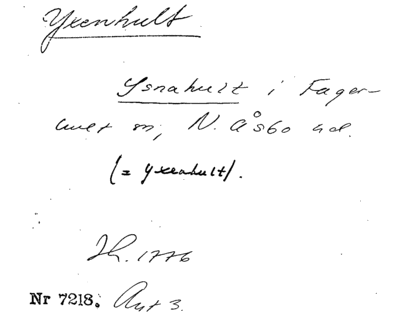 Yxenhult
Ysnahult i Fager-
hult sn, N. Åsbo hd.
(= Yxenhult).
Jh. 1776
Nr 7218. Avt 3.